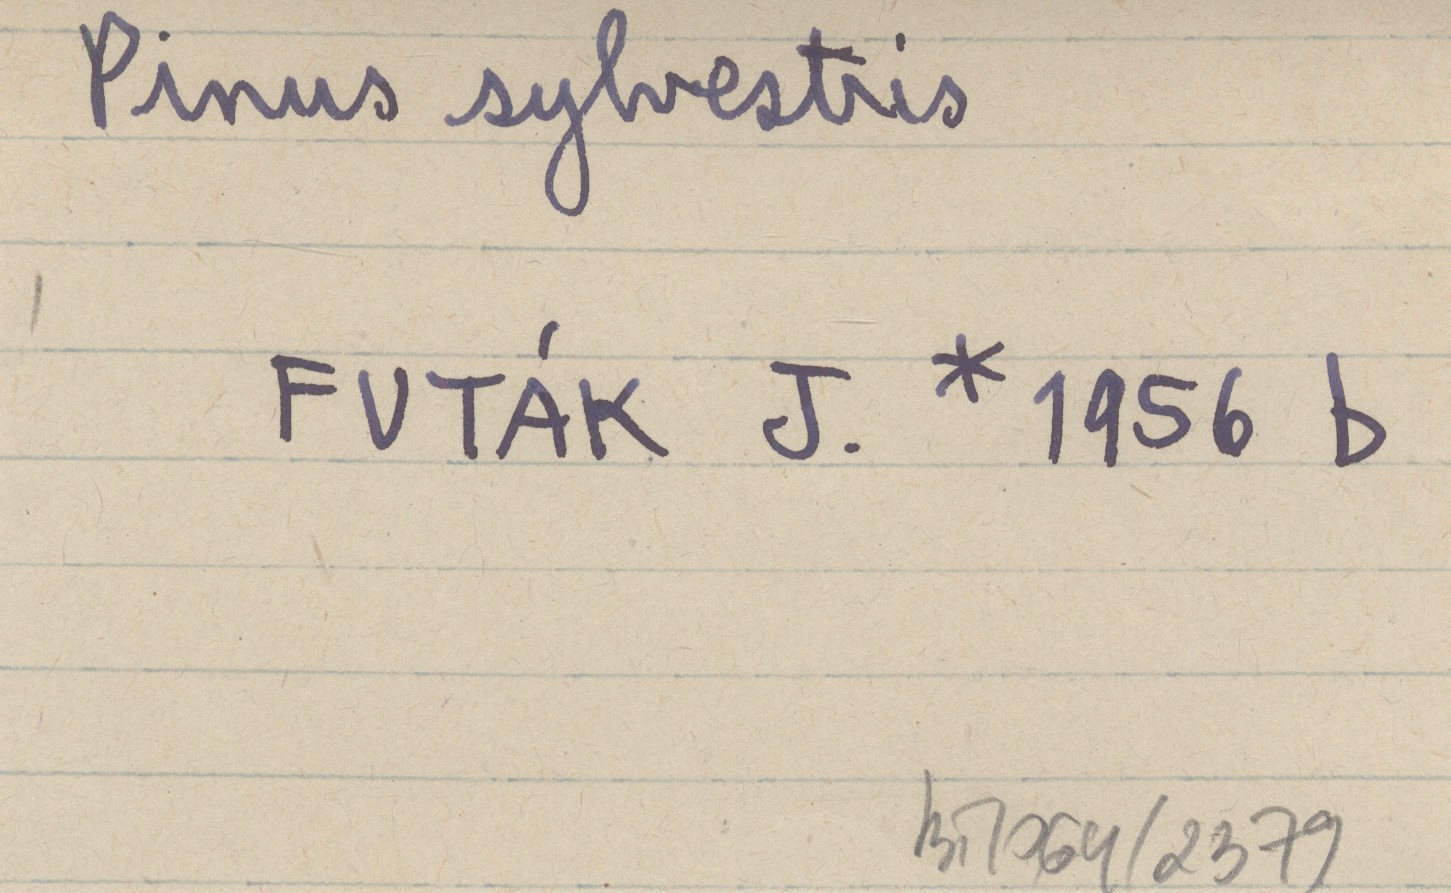 Pinus sylvestris
FUTÁK J. * 1956 b
/2379